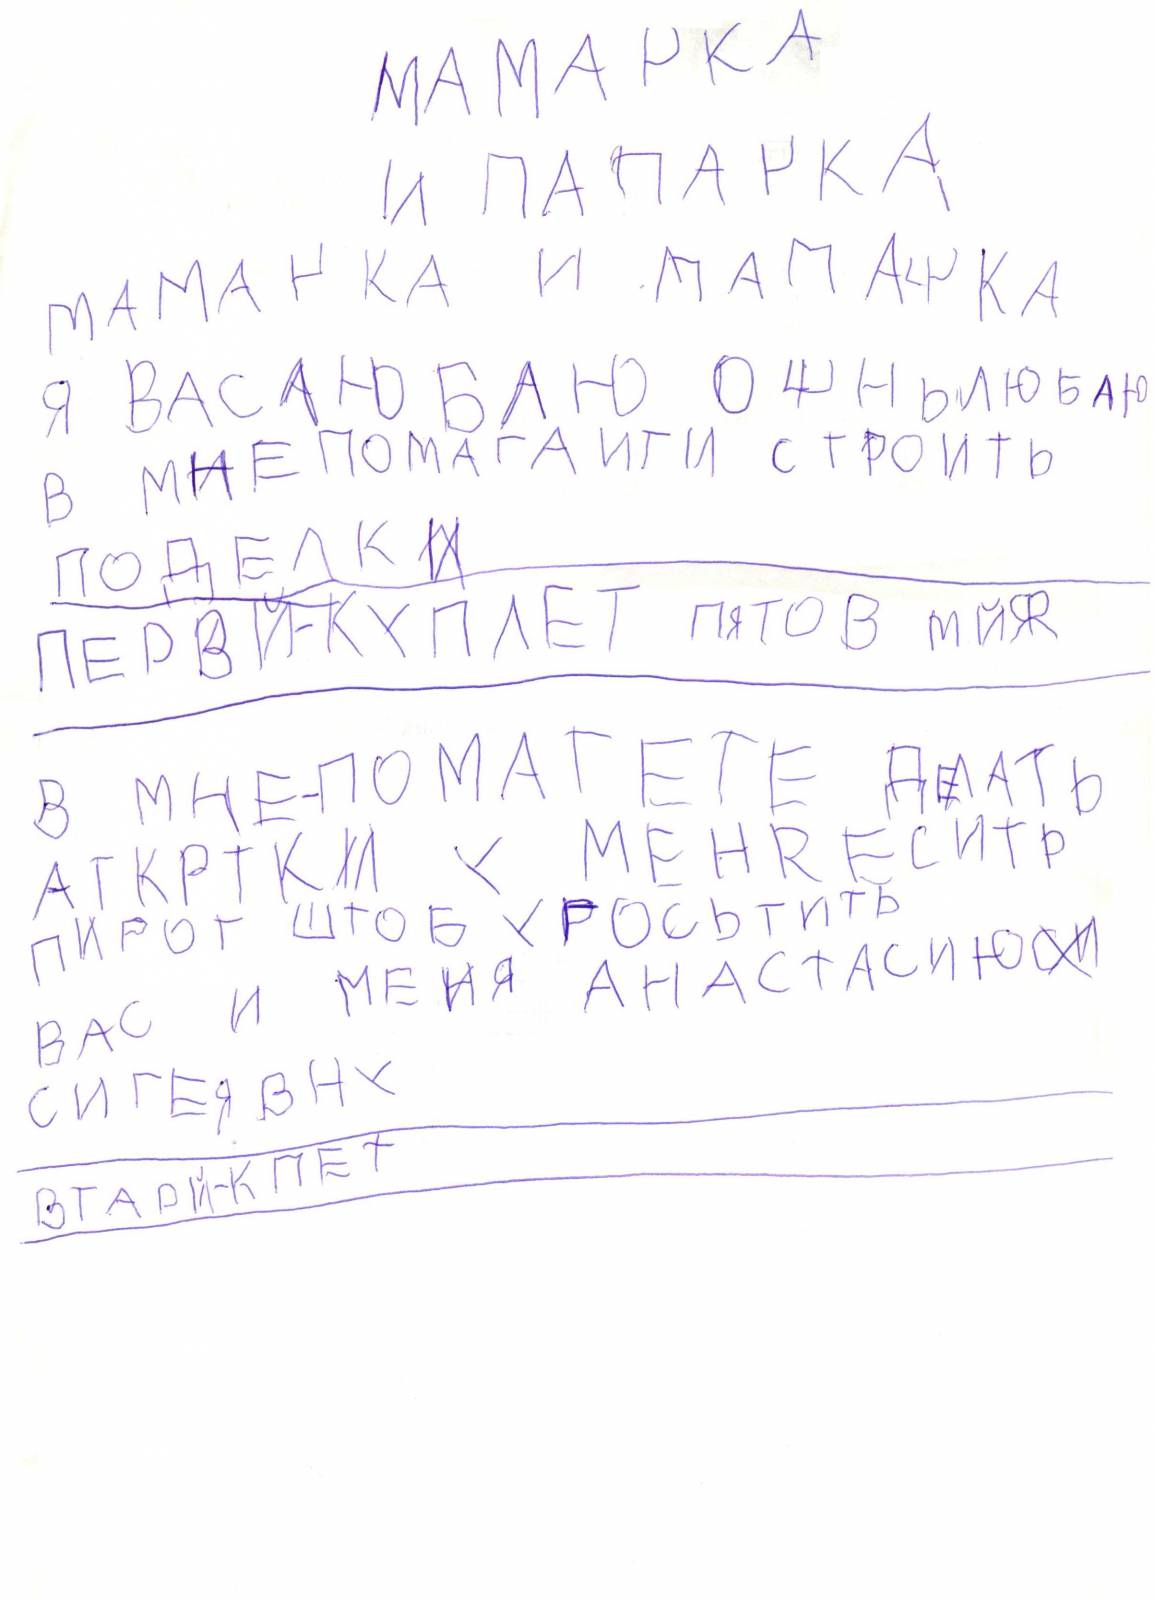 МАМАЧКА
И ПАПАЧКА
МАМАЧКА И ПАПАЧКА
Я ВАС ЛЮБЛЮ ОЧНЬ ЛЮБЛЮ
В МНЕ ПОМАГАИТИ СТРОИТЬ
ПОДЕЛКИ
ПЕРВЙ-КУПЛЕТ ПЯТОВ МЙЯ
В МНЕ-ПОМАГЕТЕ ДЕЛАТЬ
АТКРТКИ У МЕНЯ ЕСИТР
ПИРОГ ШТОБ УРОСЬТИТЬ
ВАС И МЕНЯ АНАСТАСИЮ
СИГЕЯВНУ
ВТАРЙ-КПЕТ